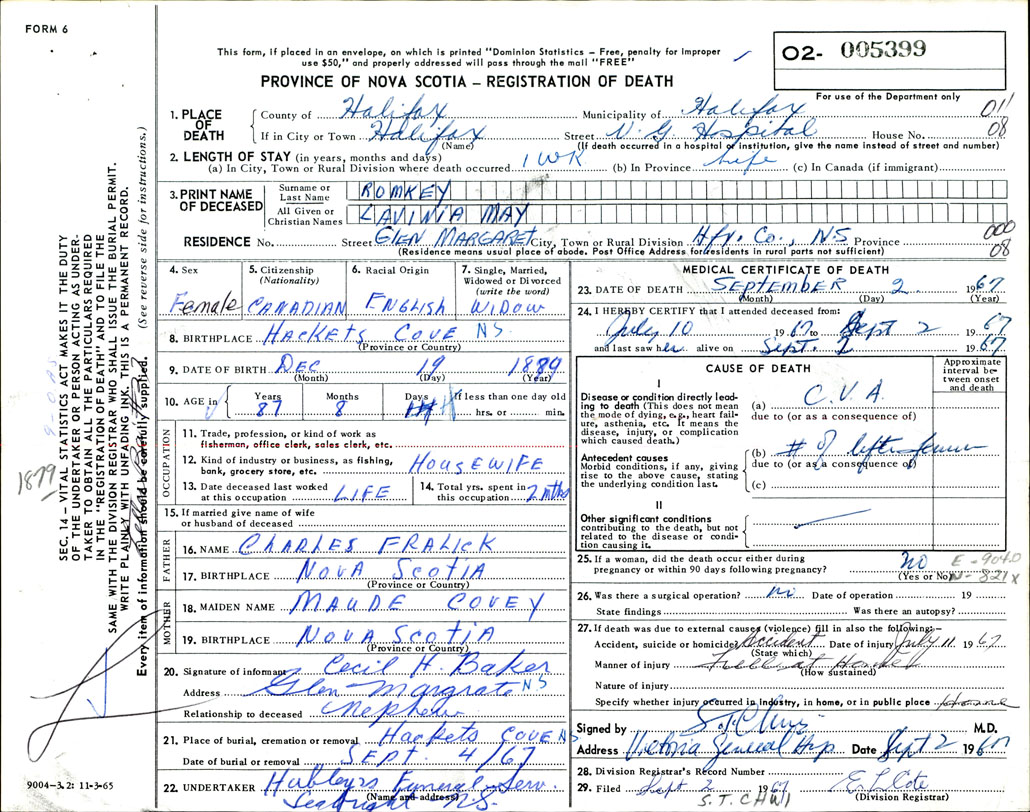 FORM 6
This form, if placed in an envelope, on which is printed "Dominion Statistics – Free, penalty for improper
use $50," and properly addressed will pass through the mail "FREE"
O2- 005399
PROVINCE OF NOVA SCOTIA – REGISTRATION OF DEATH
For use of the Department only
1. PLACE OF DEATH
County of Halifax Municipality of Halifax 011
If in City or Town Halifax Street V. G. Hospital House No. 08
(Name) (If death occurred in a hospital or institution, give the name instead of street and number)
2. LENGTH OF STAY (in years, months and days)
(a) In City, Town or Rural Division where death occurred 1 WK (b) In Province Life (c) In Canada (if immigrant)
3. PRINT NAME OF DECEASED
Surname or Last Name ROMKEY
All Given or Christian Names LAVINIA MAY
RESIDENCE No. Street GLEN MARGARET City, Town or Rural Division Hfx. Co., NS Province 000
(Residence means usual place of abode. Post Office Address for residents in rural parts not sufficient) 08
4. Sex Female
5. Citizenship (Nationality) CANADIAN
6. Racial Origin ENGLISH
7. Single, Married, Widowed or Divorced (write the word) WIDOW
8. BIRTHPLACE HACKETS COVE NS
(Province or Country)
9. DATE OF BIRTH DEC 19 1889
(Month) (Day) (Year)
10. AGE in Years 87 Months 8 Days If less than one day old
hrs. or min.
OCCUPATION
11. Trade, profession, or kind of work as
fisherman, office clerk, sales clerk, etc.
12. Kind of industry or business, as fishing,
bank, grocery store, etc. HOUSEWIFE
13. Date deceased last worked
at this occupation LIFE
14. Total yrs. spent in
this occupation 2 mths
15. If married give name of wife
or husband of deceased
FATHER
16. NAME CHARLES FRALICK
17. BIRTHPLACE NOVA SCOTIA
(Province or Country)
MOTHER
18. MAIDEN NAME MAUDE COVEY
19. BIRTHPLACE NOVA SCOTIA
(Province or Country)
20. Signature of informant Cecil H. Baker
Address Glen Margrate NS
Relationship to deceased Nephew
21. Place of burial, cremation or removal Hackets COVE NS
Date of burial or removal SEPT 4/67
22. UNDERTAKER Hubleys Funeral Serv.
(Name and address)
9004-3.2: 11-3-65
MEDICAL CERTIFICATE OF DEATH
23. DATE OF DEATH SEPTEMBER 2 1967
(Month) (Day) (Year)
24. I HEREBY CERTIFY that I attended deceased from:
July 10 1967 to Sept 2 1967
and last saw her alive on Sept. 2 1967
CAUSE OF DEATH
Approximate interval between onset and death
I
Disease or condition directly leading to death (This does not mean the mode of dying, e.g., heart failure, asthenia, etc. It means the disease, injury, or complication which caused death.)
(a) C.V.A.
due to (or as a consequence of)
Antecedent causes
Morbid conditions, if any, giving rise to the above cause, stating the underlying condition last.
(b) # of left femur
due to (or as a consequence of)
(c)
II
Other significant conditions
contributing to the death, but not related to the disease or condition causing it.
25. If a woman, did the death occur either during
pregnancy or within 90 days following pregnancy? no E-9040
(Yes or No) N-821x
26. Was there a surgical operation? no Date of operation 19
State findings Was there an autopsy?
27. If death was due to external causes (violence) fill in also the following:–
Accident, suicide or homicide? Accident Date of injury July 11 1967
(State which)
Manner of injury Fell at Home
(How sustained)
Nature of injury
Specify whether injury occurred in Industry, in home, or in public place Home
Signed by M.D.
Address Victoria General Hosp. Date Sept 2 1967
28. Division Registrar's Record Number
29. Filed Sept 2 1967 E L Cote
(Division Registrar)
S.T. CHW1
SEC. 14 – VITAL STATISTICS ACT MAKES IT THE DUTY
OF THE UNDERTAKER OR PERSON ACTING AS UNDER-
TAKER TO OBTAIN ALL THE PARTICULARS REQUIRED
IN THE "REGISTRATION OF DEATH" AND TO FILE THE
SAME WITH THE DIVISION REGISTRAR WHO SHALL ISSUE BURIAL PERMIT.
WRITE PLAINLY WITH UNFADING INK. THIS IS A PERMANENT RECORD.
Every item of information should be carefully supplied. (See reverse side for instructions.)
1879